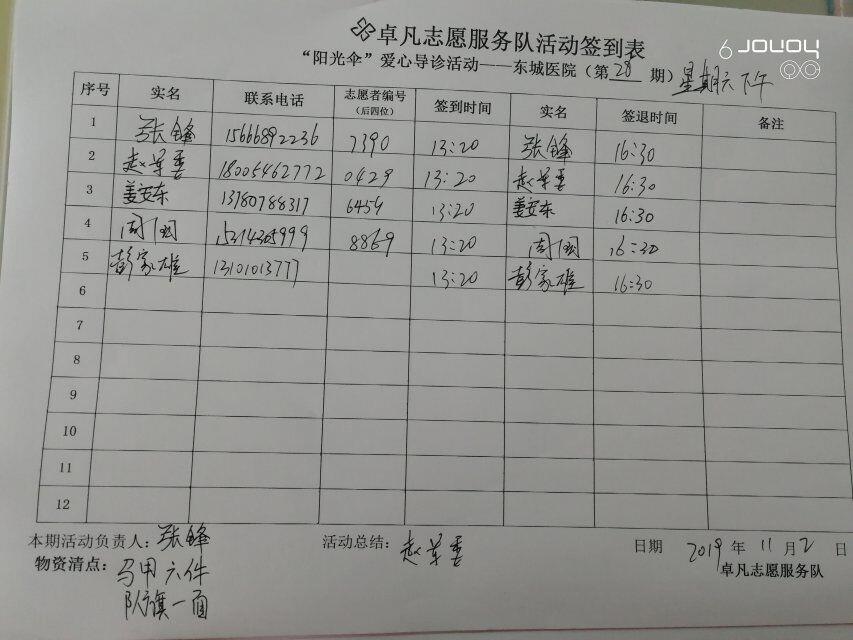 6 JOLOY
卓凡志愿服务队活动签到表
“阳光伞”爱心导诊活动——东城医院（第 28 期）星期六下午
序号 实名 联系电话 志愿者编号（后四位） 签到时间 实名 签退时间 备注
1 张锋 15666892236 7390 13:20 张锋 16:30
2 赵 18005462772 0429 13:20 赵 16:30
3 姜安东 13780788317 6454 13:20 姜安东 16:30
4 周 8869 13:20 周 16:30
5 彭家雄 13101013777 13:20 彭家雄 16:30
6
7
8
9
10
11
12
本期活动负责人：张锋 活动总结：赵 日期 2019 年 11 月 2 日
物资清点：马甲六件 卓凡志愿服务队
队旗一面